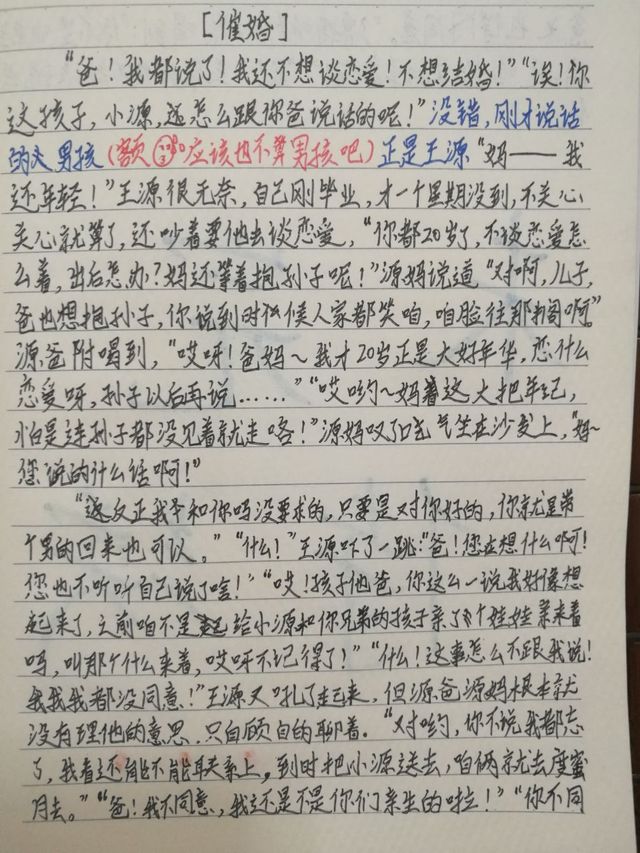 [催婚]
“爸！我都说了！我还不想谈恋爱！不想结婚！”“诶！你
这孩子，小源，还怎么跟你爸说话的呢！”没错，刚才说话
的 男孩(额 应该也不算男孩吧)正是王源“妈——我
还年轻！”王源很无奈，自己刚毕业，才一个星期没到，不关心
关心就算了，还吵着要他去谈恋爱，“你都20岁了，不谈恋爱怎
么着，出后怎办？妈还等着抱孙子呢！”源妈说道“对啊，儿子，
爸也想抱孙子，你说到时候人家都笑咱，咱脸往那搁啊。”
源爸附喝到，“哎呀！爸妈~我才20岁正是大好年华，恋什么
恋爱呀，孙子以后再说……”“哎哟~妈着这大把年纪，
怕是连孙子都没见着就走咯！”源妈叹了口气 气坐在沙发上，“妈~
您说的什么话啊！”
“反正我和你妈没要求的，只要是对你好的，你就是带
个男的回来也可以。”“什么！”王源吓了一跳“爸！您在想什么啊！
您也不听听自己说了啥！”“哎！孩子他爸，你这么一说我好像想
起来了，之前咱不是给小源和你兄弟的孩子亲了个娃娃亲来着
吗，叫那个什么来着，哎呀不记得了！”“什么！这事怎么不跟我说！
我我我都没同意！”王源又吼了起来，但源爸源妈根本就
没有理他的意思，只自顾自的聊着。“对哟，你不说我都忘
了，我看还能不能联系上，到时把小源送去，咱俩就去度蜜
月去。”“爸！我不同意，我还是不是你们亲生的啦！”“你不同